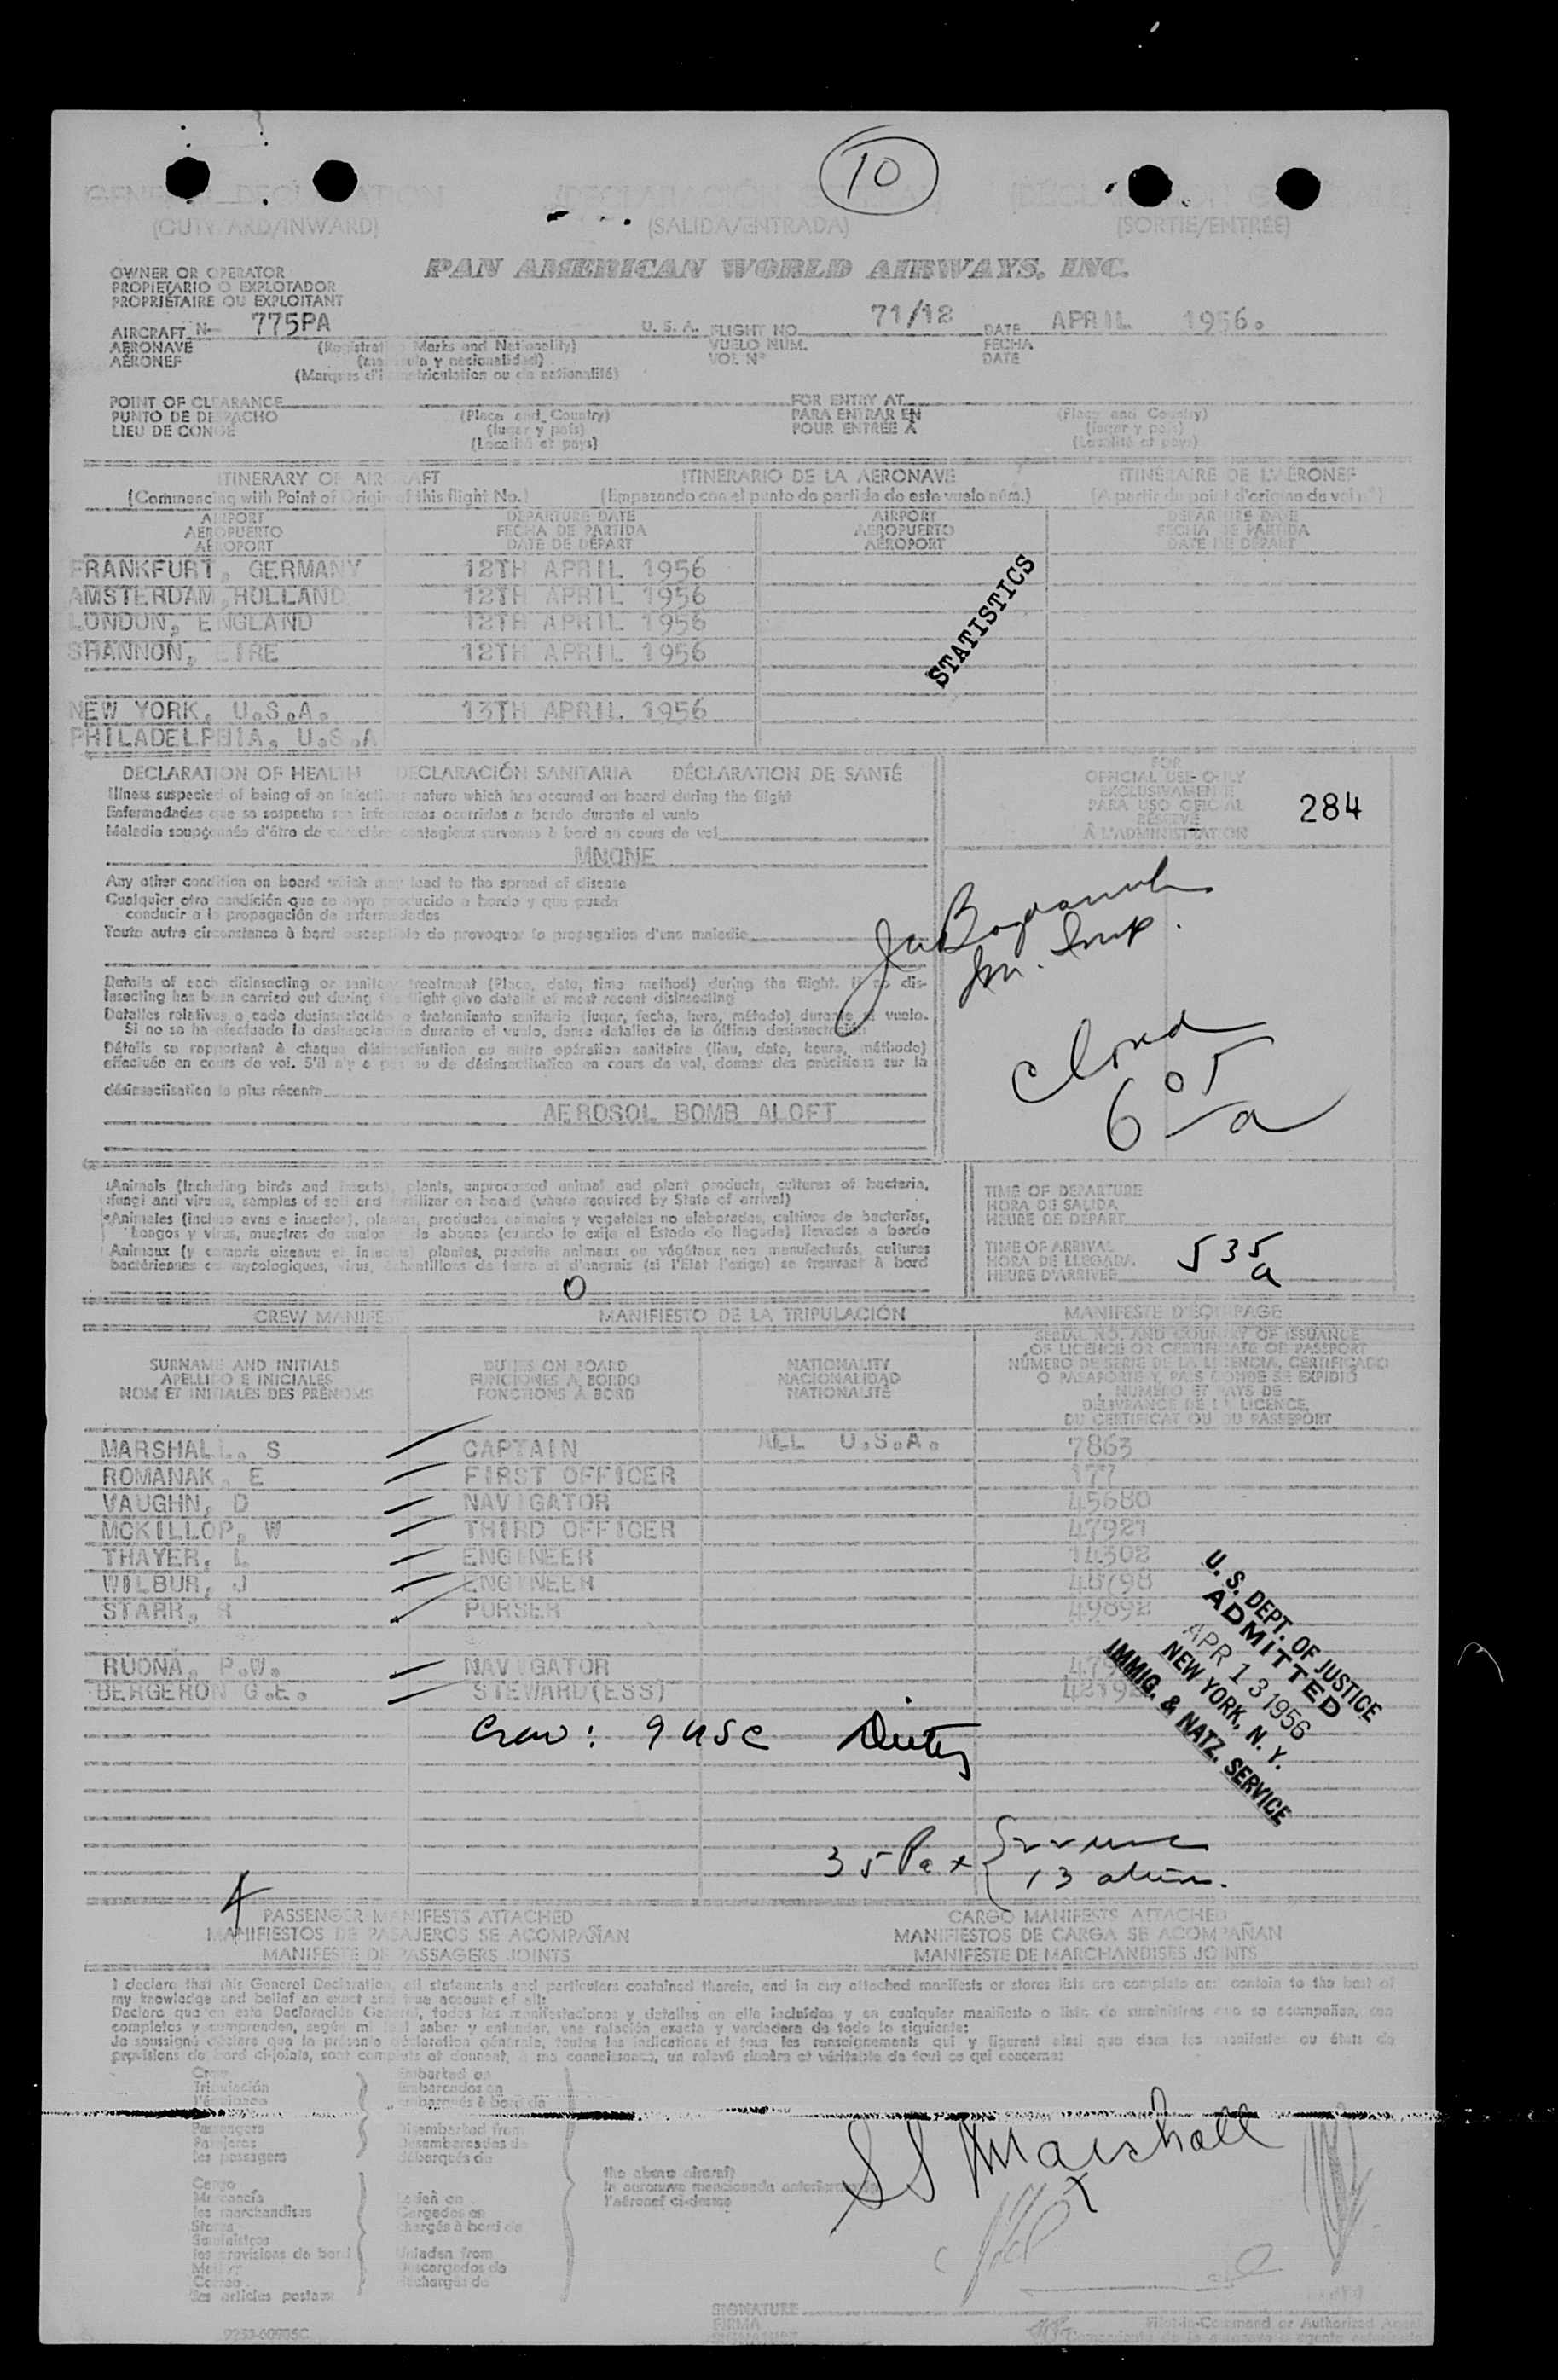 10
GENERAL DECLARATION (DECLARACIÓN GENERAL) (DÉCLARATION GÉNÉRALE)
(OUTWARD/INWARD) (SALIDA/ENTRADA) (SORTIE/ENTRÉE)
OWNER OR OPERATOR
PROPIETARIO O EXPLOTADOR
PROPRIÉTAIRE OU EXPLOITANT
PAN AMERICAN WORLD AIRWAYS, INC.
AIRCRAFT N- 775PA U. S. A. FLIGHT NO. 71/12 DATE APRIL 1956.
AERONAVE (Registration Marks and Nationality) VUELO NÚM. FECHA
AÉRONEF y nacionalidad) VOL Nº DATE
(Marques d'immatriculation ou de nationalité)
POINT OF CLEARANCE FOR ENTRY AT
PUNTO DE DESPACHO (Place and Country) PARA ENTRAR EN (Place and Country)
LIEU DE CONGÉ (lugar y país) POUR ENTRÉE À (lugar y país)
(Localité et pays) (Localité et pays)
ITINERARY OF AIRCRAFT ITINERARIO DE LA AERONAVE ITINÉRAIRE DE L'AÉRONEF
(Commencing with Point of Origin of this flight No.) (Empezando con el punto de partida de este vuelo núm.) (A partir du point d'origine du vol nº)
AIRPORT DEPARTURE DATE AIRPORT DEPARTURE DATE
AEROPUERTO FECHA DE PARTIDA AEROPUERTO FECHA DE PARTIDA
AÉROPORT DATE DE DÉPART AÉROPORT DATE DE DÉPART
FRANKFURT, GERMANY 12TH APRIL 1956
AMSTERDAM, HOLLAND 12TH APRIL 1956
LONDON, ENGLAND 12TH APRIL 1956
SHANNON, EIRE 12TH APRIL 1956
STATISTICS
NEW YORK, U.S.A. 13TH APRIL 1956
PHILADELPHIA, U.S.A
DECLARATION OF HEALTH DECLARACIÓN SANITARIA DÉCLARATION DE SANTÉ
Illness suspected of being of an infectious nature which has occured on board during the flight
Enfermedades que se sospecha son infecciosas ocurridas a bordo durante el vuelo
Maladie soupçonnée d'être de caractère contagieux survenus à bord en cours de vol
MNONE
FOR
OFFICIAL USE ONLY
EXCLUSIVAMENTE
PARA USO OFICIAL
RÉSERVÉ
À L'ADMINISTRATION
284
Any other condition on board which may lead to the spread of disease
Cualquier otra condición que se haya producido a bordo y que pueda
conducir a la propagación de enfermedades
Toute autre circonstance à bord susceptible de provoquer la propagation d'une maladie
Details of each disinsecting or sanitary treatment (Place, date, time method) during the flight. If no dis-
insecting has been carried out during the flight give details of most recent disinsecting
Detalles relativos a cada desinsectación o tratamiento sanitario (lugar, fecha, hora, método) durante el vuelo.
Si no se ha efectuado la desinsectación durante el vuelo, dense detalles de la última desinsectación
Détails se rapportant à chaque désinsectisation ou autre opération sanitaire (lieu, date, heure, méthode)
effectuée en cours de vol. S'il n'y a pas eu de désinsectisation en cours de vol, donner des précisions sur la
désinsectisation la plus récente
AEROSOL BOMB ALOFT
6 05 a
Animals (including birds and insects), plants, unprocessed animal and plant products, cultures of bacteria,
fungi and viruses, samples of soil and fertilizer on board (where required by State of arrival)
Animales (incluso aves e insectos), plantas, productos animales y vegetales no elaborados, cultivos de bacterias,
hongos y virus, muestras de suelos y de abonos (cuando lo exija el Estado de llegada) llevados a bordo
Animaux (y compris oiseaux et insectes) plantes, produits animaux ou végétaux non manufacturés, cultures
bactériennes ou mycologiques, virus, échantillons de terre et d'engrais (si l'État l'exige) se trouvant à bord
0
TIME OF DEPARTURE
HORA DE SALIDA
HEURE DE DÉPART
TIME OF ARRIVAL
HORA DE LLEGADA 5 35 a
HEURE D'ARRIVÉE
CREW MANIFEST MANIFIESTO DE LA TRIPULACIÓN MANIFESTE D'ÉQUIPAGE
SURNAME AND INITIALS DUTIES ON BOARD NATIONALITY
APELLIDO E INICIALES FUNCIONES A BORDO NACIONALIDAD
NOM ET INITIALES DES PRÉNOMS FONCTIONS À BORD NATIONALITÉ
SERIAL NO. AND COUNTRY OF ISSUANCE
OF LICENCE OR CERTIFICATE OR PASSPORT
NÚMERO DE SERIE DE LA LICENCIA, CERTIFICADO
O PASAPORTE Y PAÍS DONDE SE EXPIDIÓ
NUMÉRO ET PAYS DE
DÉLIVRANCE DE LA LICENCE,
DU CERTIFICAT OU DU PASSEPORT
MARSHALL, S CAPTAIN ALL U.S.A. 7863
ROMANAK, E FIRST OFFICER 177
VAUGHN, D NAVIGATOR 45680
MCKILLOP, W THIRD OFFICER 47921
THAYER, L ENGINEER 14302
WILBUR, J ENGINEER 48798
STARR, PURSER 49892
RUONA, P.W. NAVIGATOR
BERGERON G.E. STEWARD(ESS)
U. S. DEPT. OF JUSTICE
ADMITTED
APR 13 1956
NEW YORK, N. Y.
IMMIG. & NATZ. SERVICE
Crew: 9 USC
35 Pax
13 aliens.
4
PASSENGER MANIFESTS ATTACHED CARGO MANIFESTS ATTACHED
MANIFIESTOS DE PASAJEROS SE ACOMPAÑAN MANIFIESTOS DE CARGA SE ACOMPAÑAN
MANIFESTE DE PASSAGERS JOINTS MANIFESTE DE MARCHANDISES JOINTS
I declare that this General Declaration, all statements and particulars contained therein, and in any attached manifests or stores lists are complete and contain to the best of
my knowledge and belief an exact and true account of all:
Declaro que en esta Declaración General, todas las manifestaciones y detalles en ella incluidos y en cualquier manifiesto o lista de suministros que se acompañan, son
completos y comprenden, según mi leal saber y entender, una relación exacta y verdadera de todo lo siguiente:
Je soussigné déclare que la présente déclaration générale, toutes les indications et tous les renseignements qui y figurent ainsi que dans les manifestes ou états de
provisions de bord ci-joints, sont complets et donnent, à ma connaissance, un relevé sincère et véritable de tout ce qui concerne:
Crew Embarked on
Tripulación Embarcados en
l'équipage embarqués à bord de
Passengers Disembarked from
Pasajeros Desembarcados de
les passagers débarqués de
the above aircraft
la aeronave mencionada anteriormente
l'aéronef ci-dessus
Cargo
Mercancía Laden on
les marchandises Cargados en
Stores chargés à bord de
Suministros
les provisions de bord Unladen from
Descargados de
Correo déchargés de
les articles postaux
S S Marshall
SIGNATURE
FIRMA
SIGNATURE
Pilot-in-Command or Authorized Agent